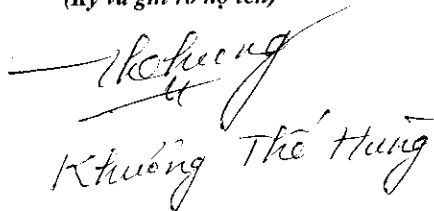 (Ký và ghi rõ họ tên)
Khương Thế Hùng